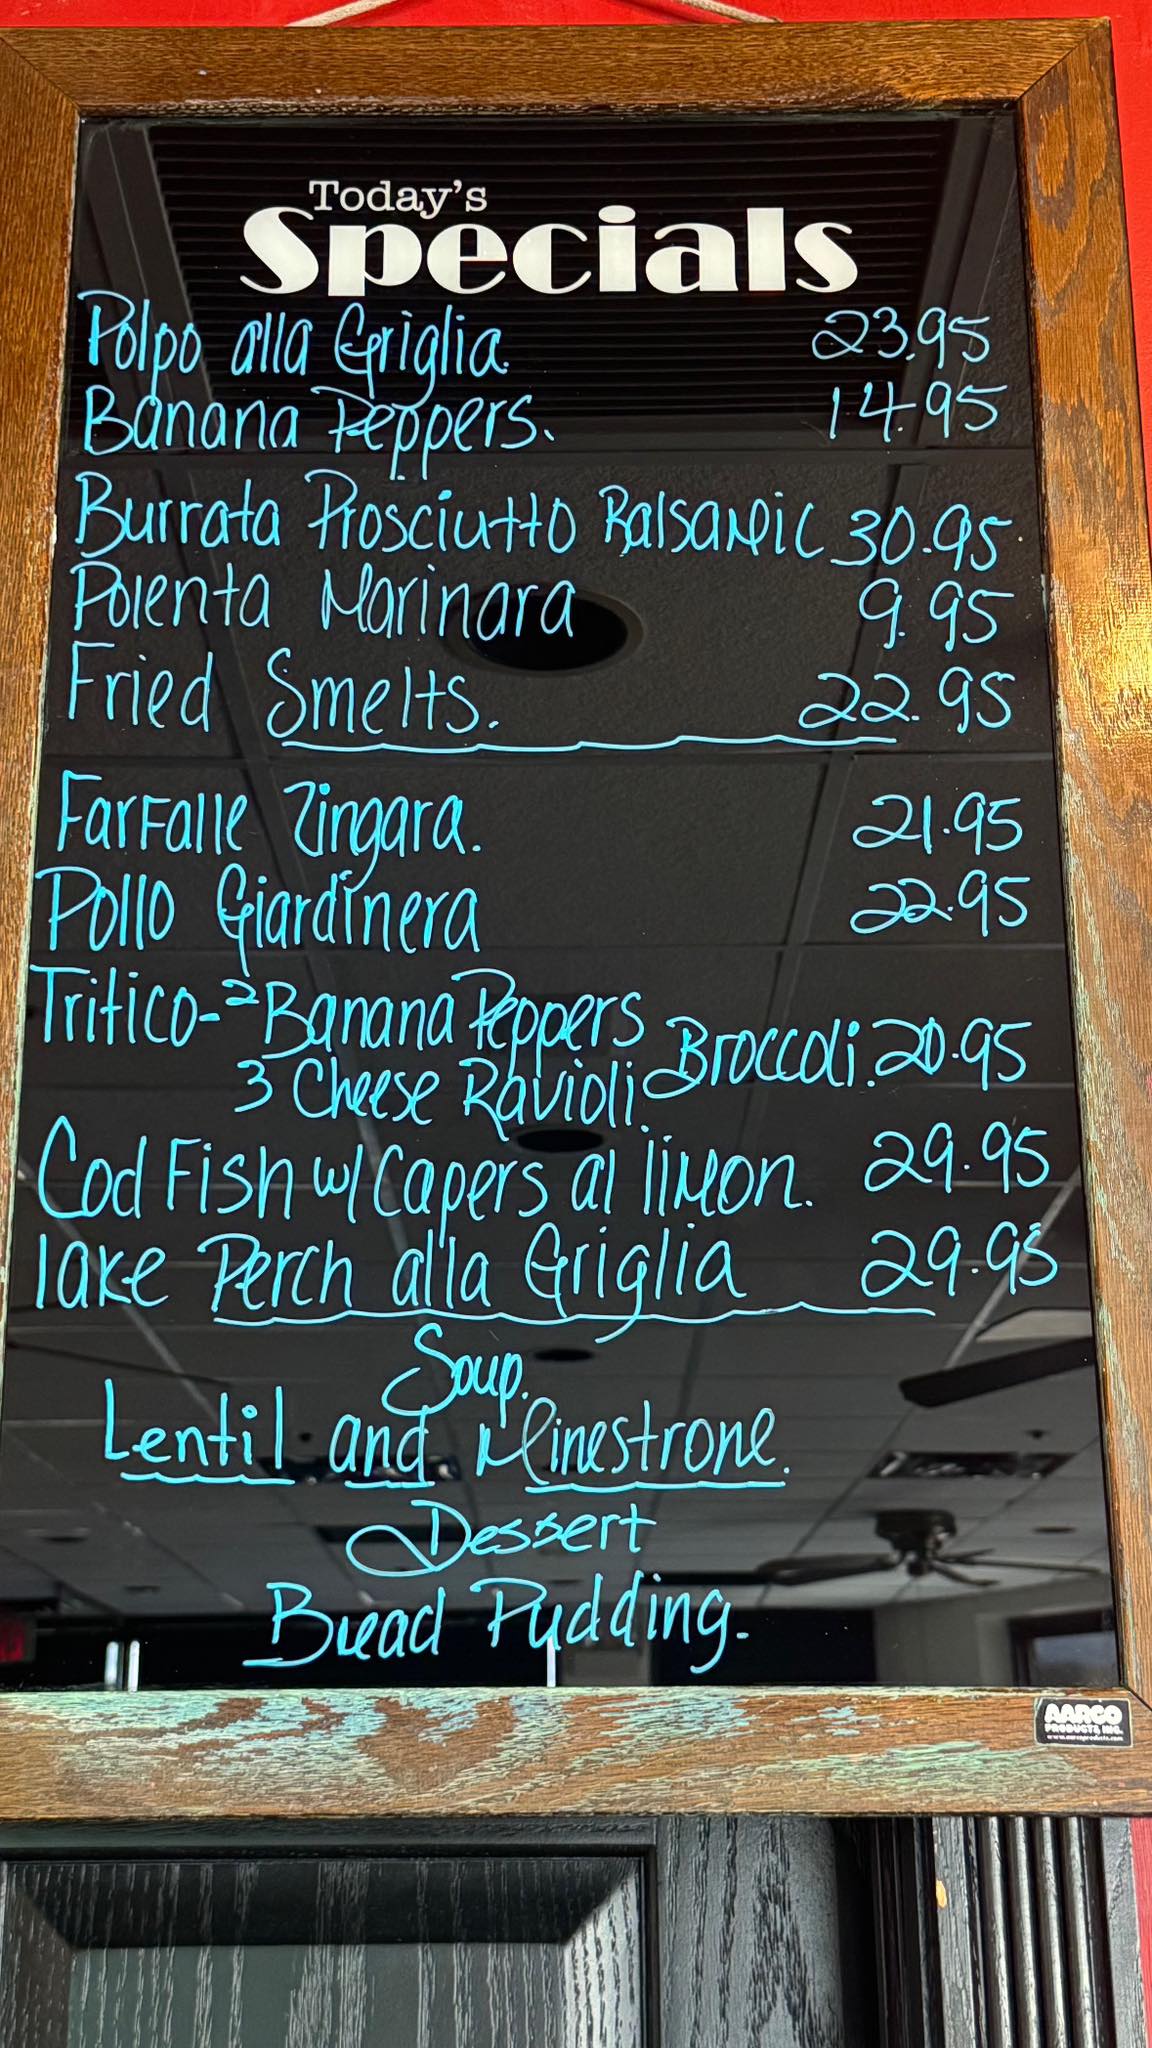 Today's
Specials
Polpo alla Griglia. 23.95
Banana Peppers. 14.95
Burrata Prosciutto Balsamic 30.95
Polenta Marinara 9.95
Fried Smelts. 22.95
Farfalle Zingara. 21.95
Pollo Giardinera 22.95
Tritico-2 Banana Peppers
3 Cheese Ravioli Broccoli. 20.95
Cod Fish w/ Capers al limon. 29.95
lake Perch alla Griglia 29.95
Soup.
Lentil and Minestrone.
Dessert
Bread Pudding.
AARCO
PRODUCTS, INC.
www.aarcoproducts.com